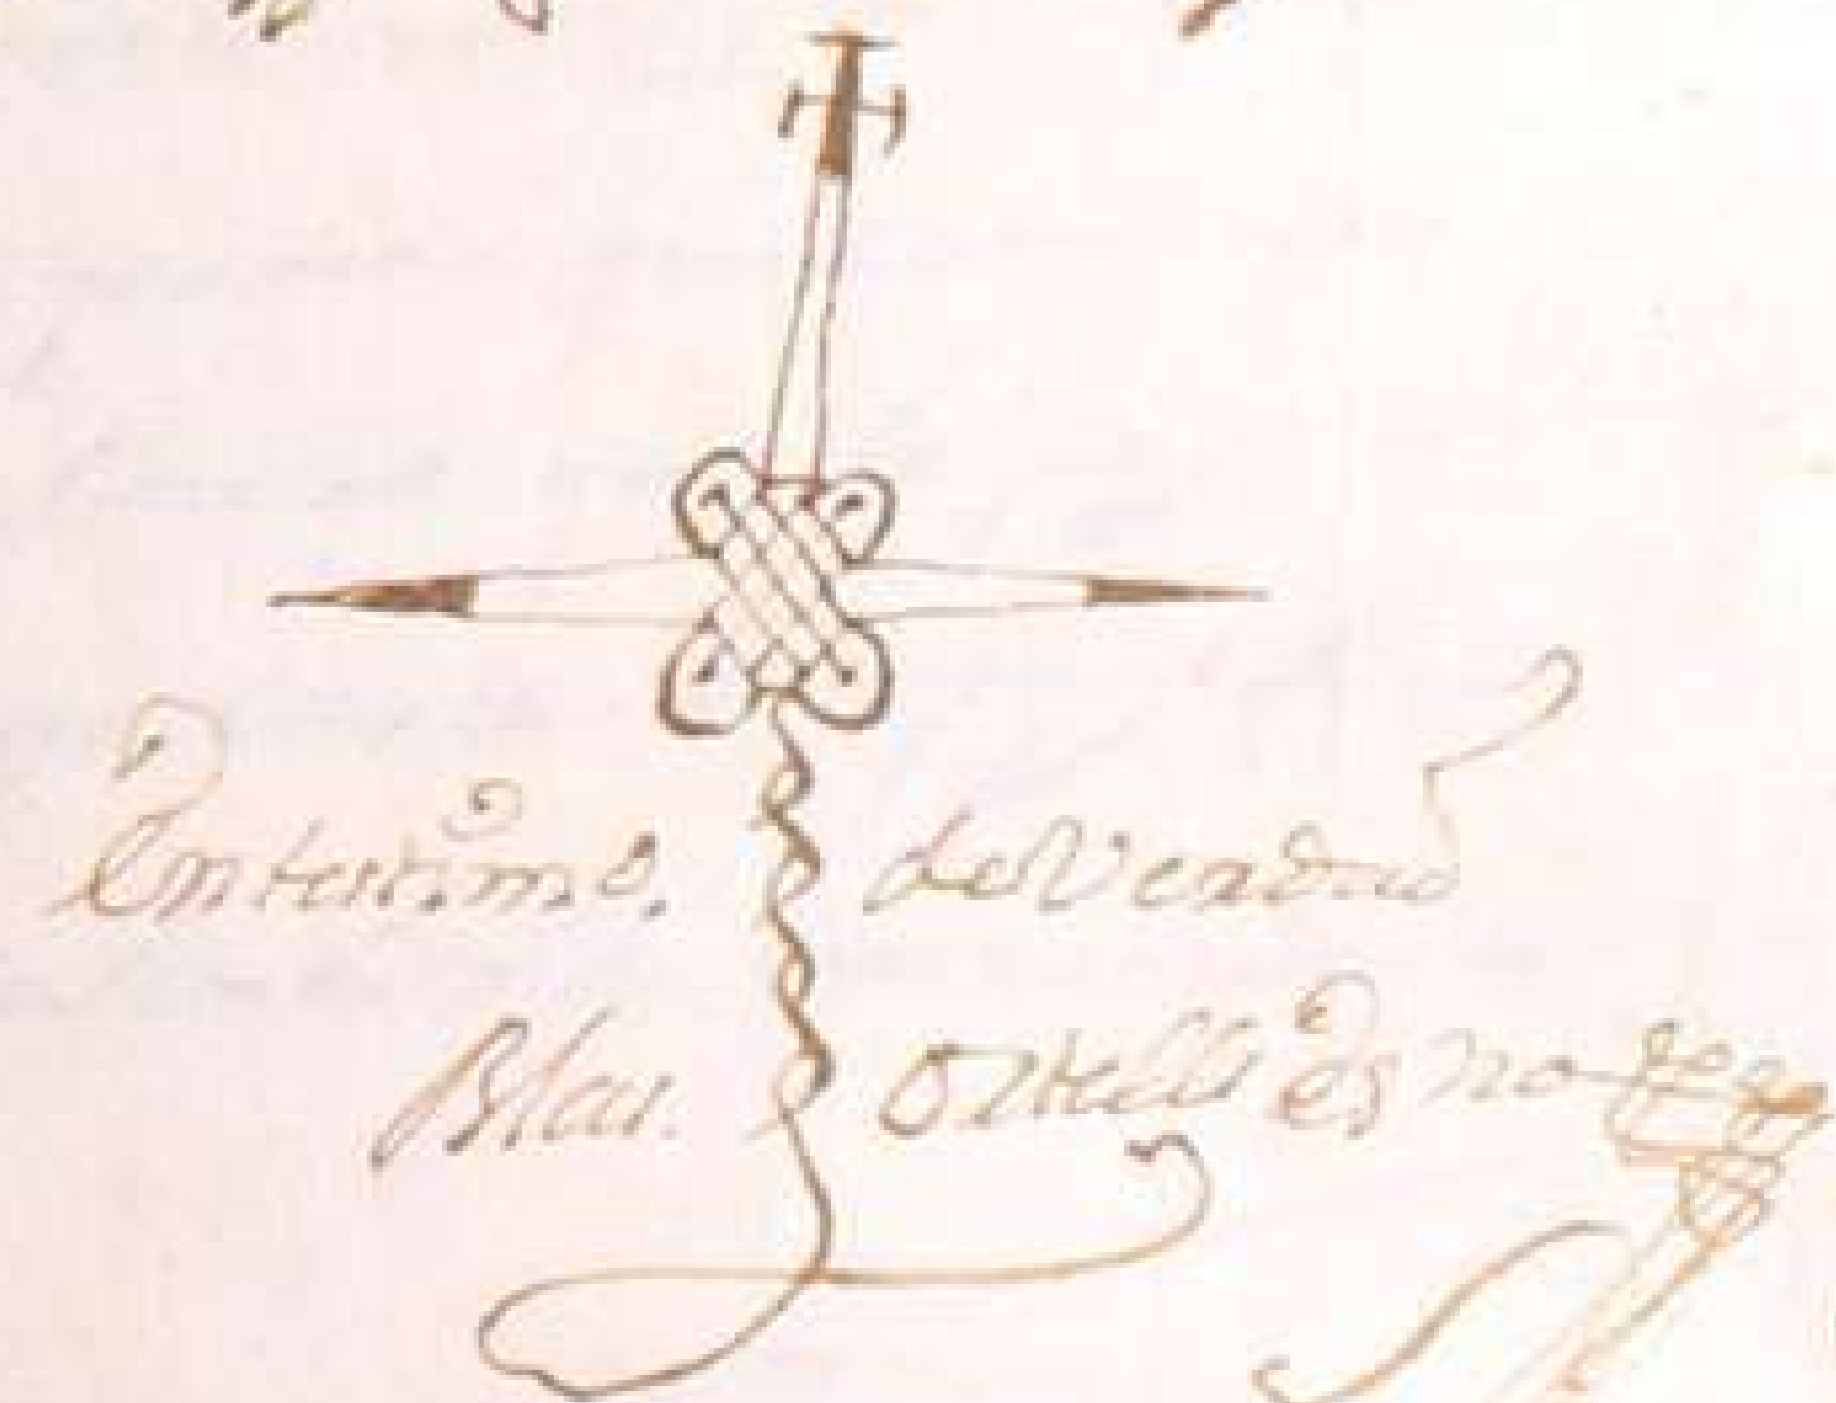 En testimo. de Verdad
Blas. ortells es no